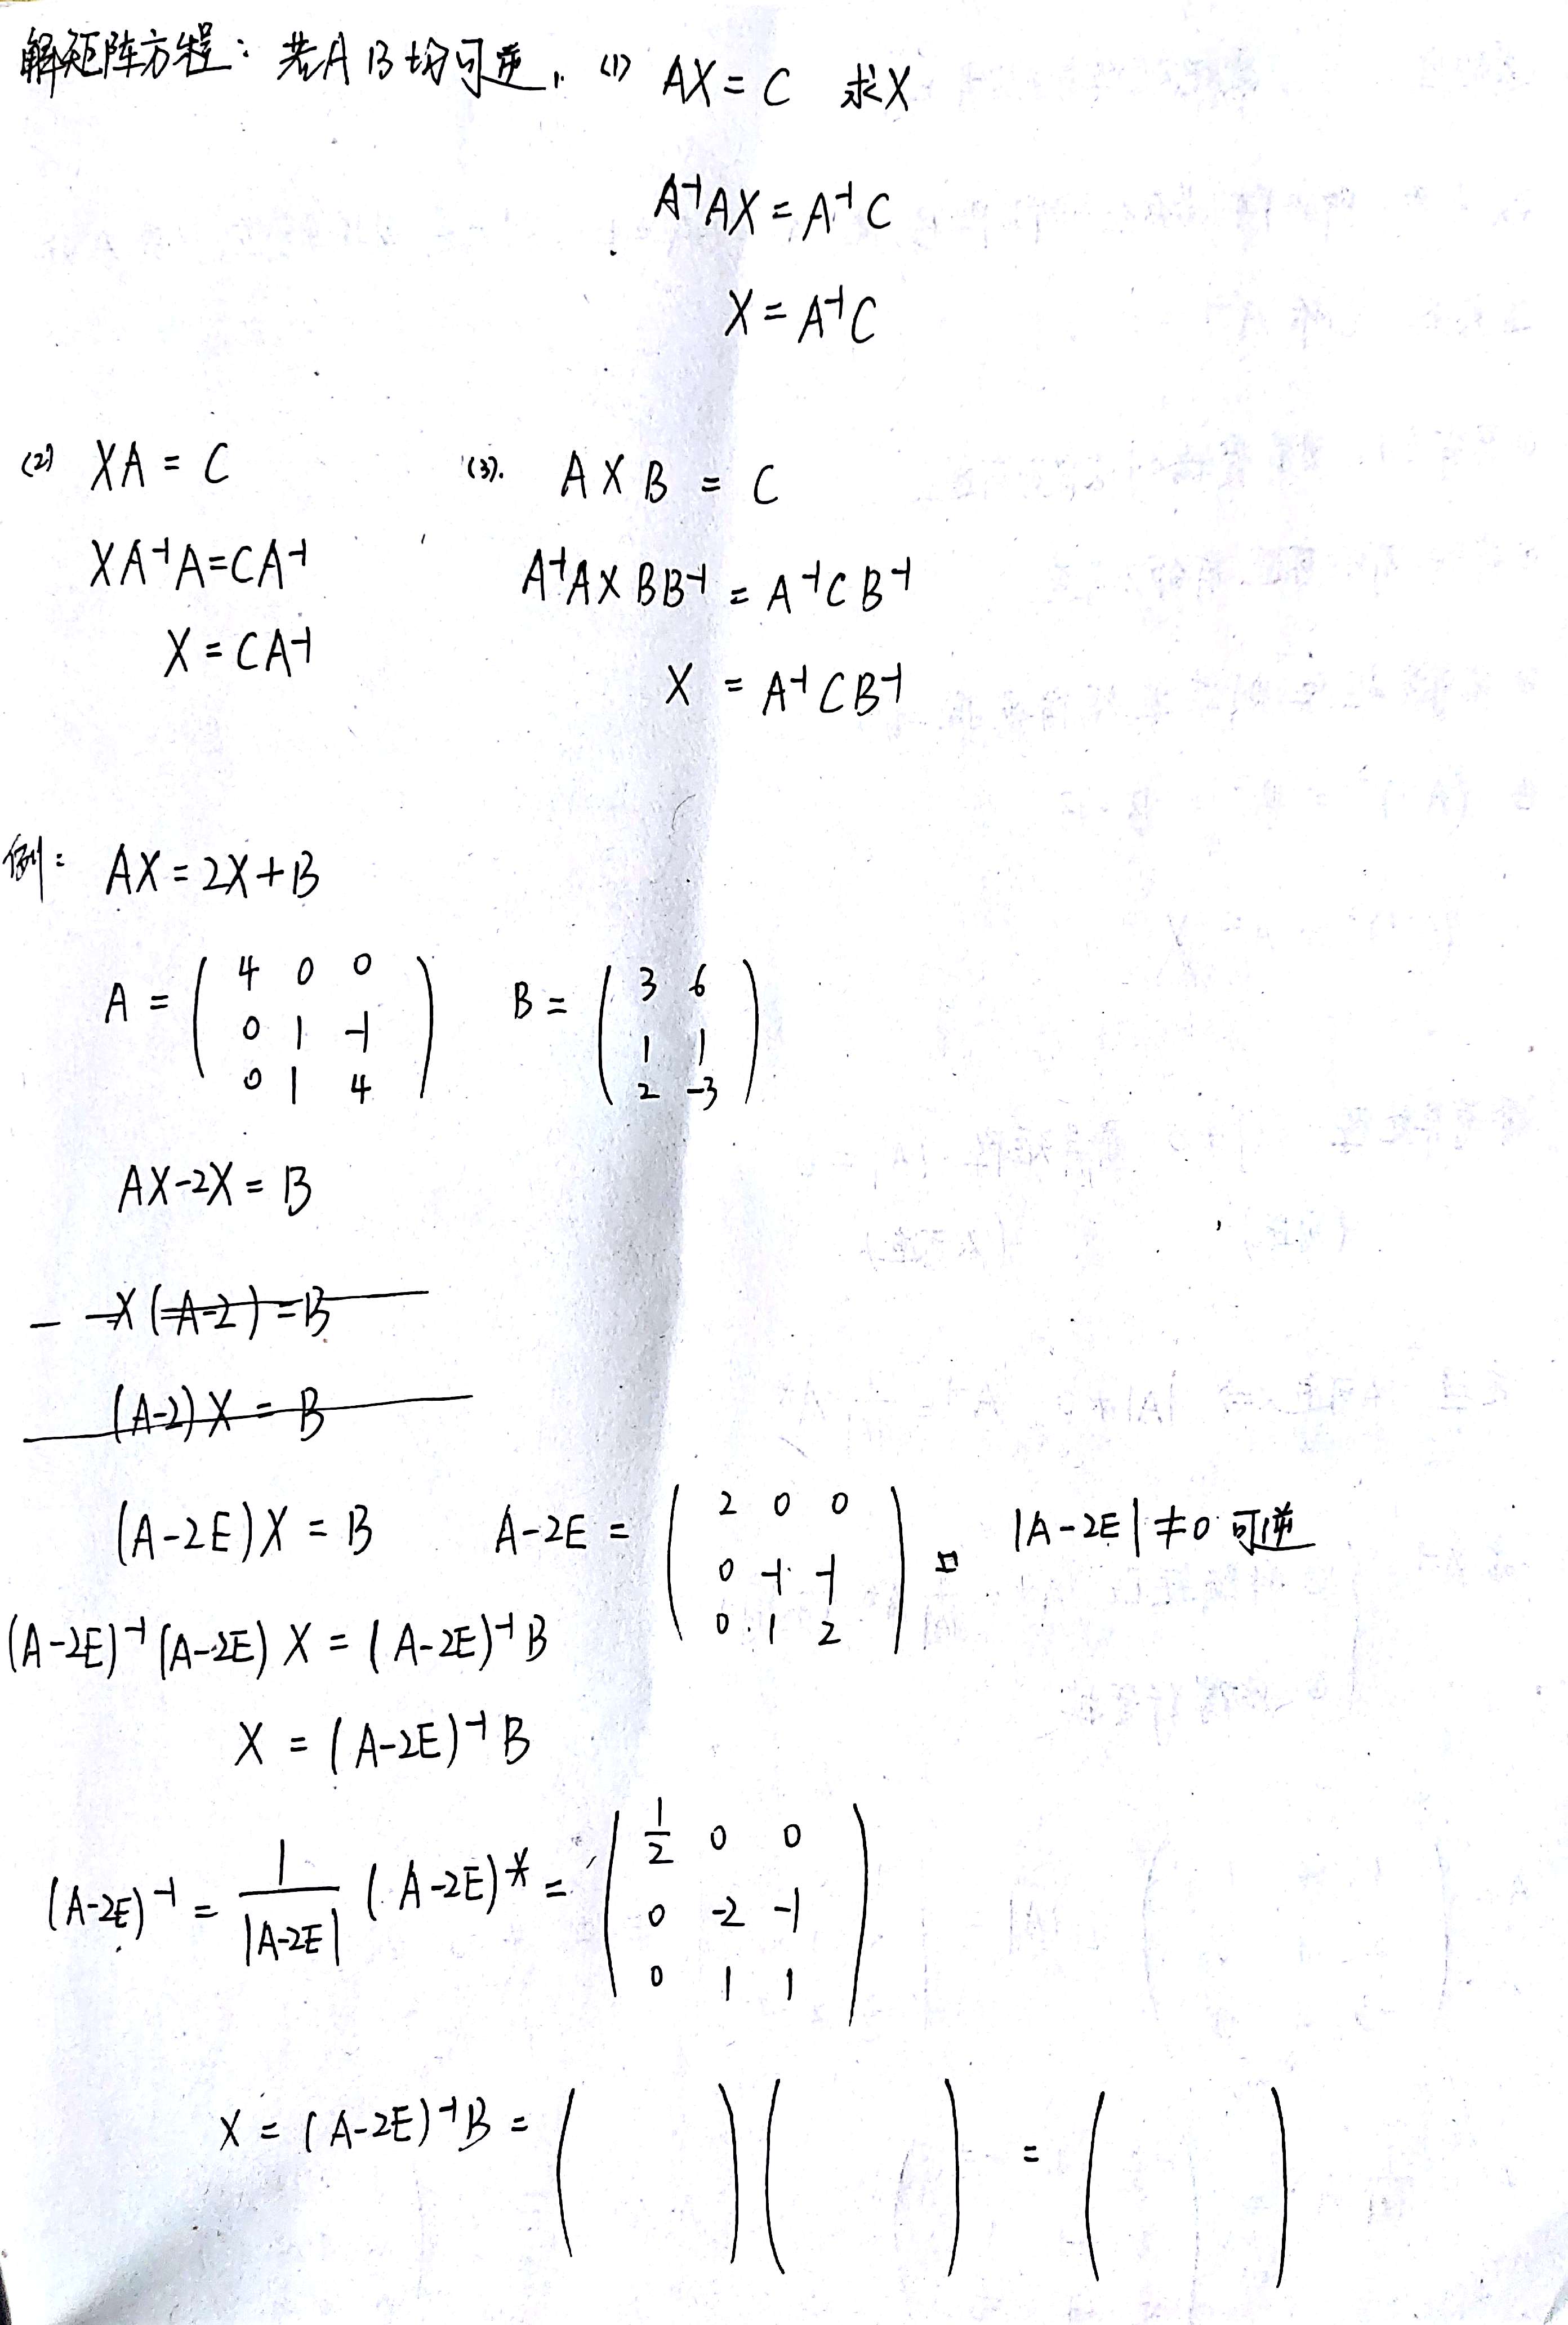 解矩阵方程：若A B均可逆, (1) AX = C 求X
A⁻¹AX = A⁻¹C
X = A⁻¹C
(2) XA = C
XA⁻¹A=CA⁻¹
X = CA⁻¹
(3). AXB = C
A⁻¹AXBB⁻¹ = A⁻¹CB⁻¹
X = A⁻¹CB⁻¹
例: AX = 2X+B
A = ( 4 0 0
0 1 -1
0 1 4 )
B = ( 3 6
1 1
2 -3 )
AX-2X = B
X(A-2) = B
(A-2)X = B
(A-2E)X = B
A-2E = ( 2 0 0
0 -1 -1
0 1 2 ) |A-2E| ≠ 0 可逆
(A-2E)⁻¹(A-2E)X = (A-2E)⁻¹B
X = (A-2E)⁻¹B
(A-2E)⁻¹ = 1/|A-2E| (A-2E)* = ( 1/2 0 0
0 -2 -1
0 1 1 )
X = (A-2E)⁻¹B = ( )( ) = ( )